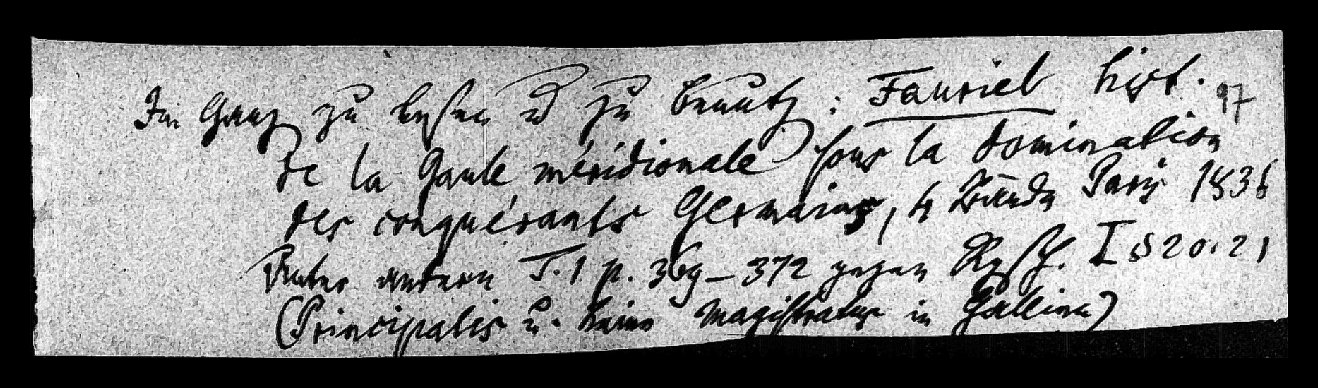 Im Ganz zu lesen u zu benutz: Fauriel hist. 97
de la Gaule méridionale sous la domination
des conquérants Germains, 4 Bände Paris 1836
Unter andern T. 1 p. 369–372 gegen RgSch. I S 20. 21
(Principalis u. keine Magistratus in Gallien)